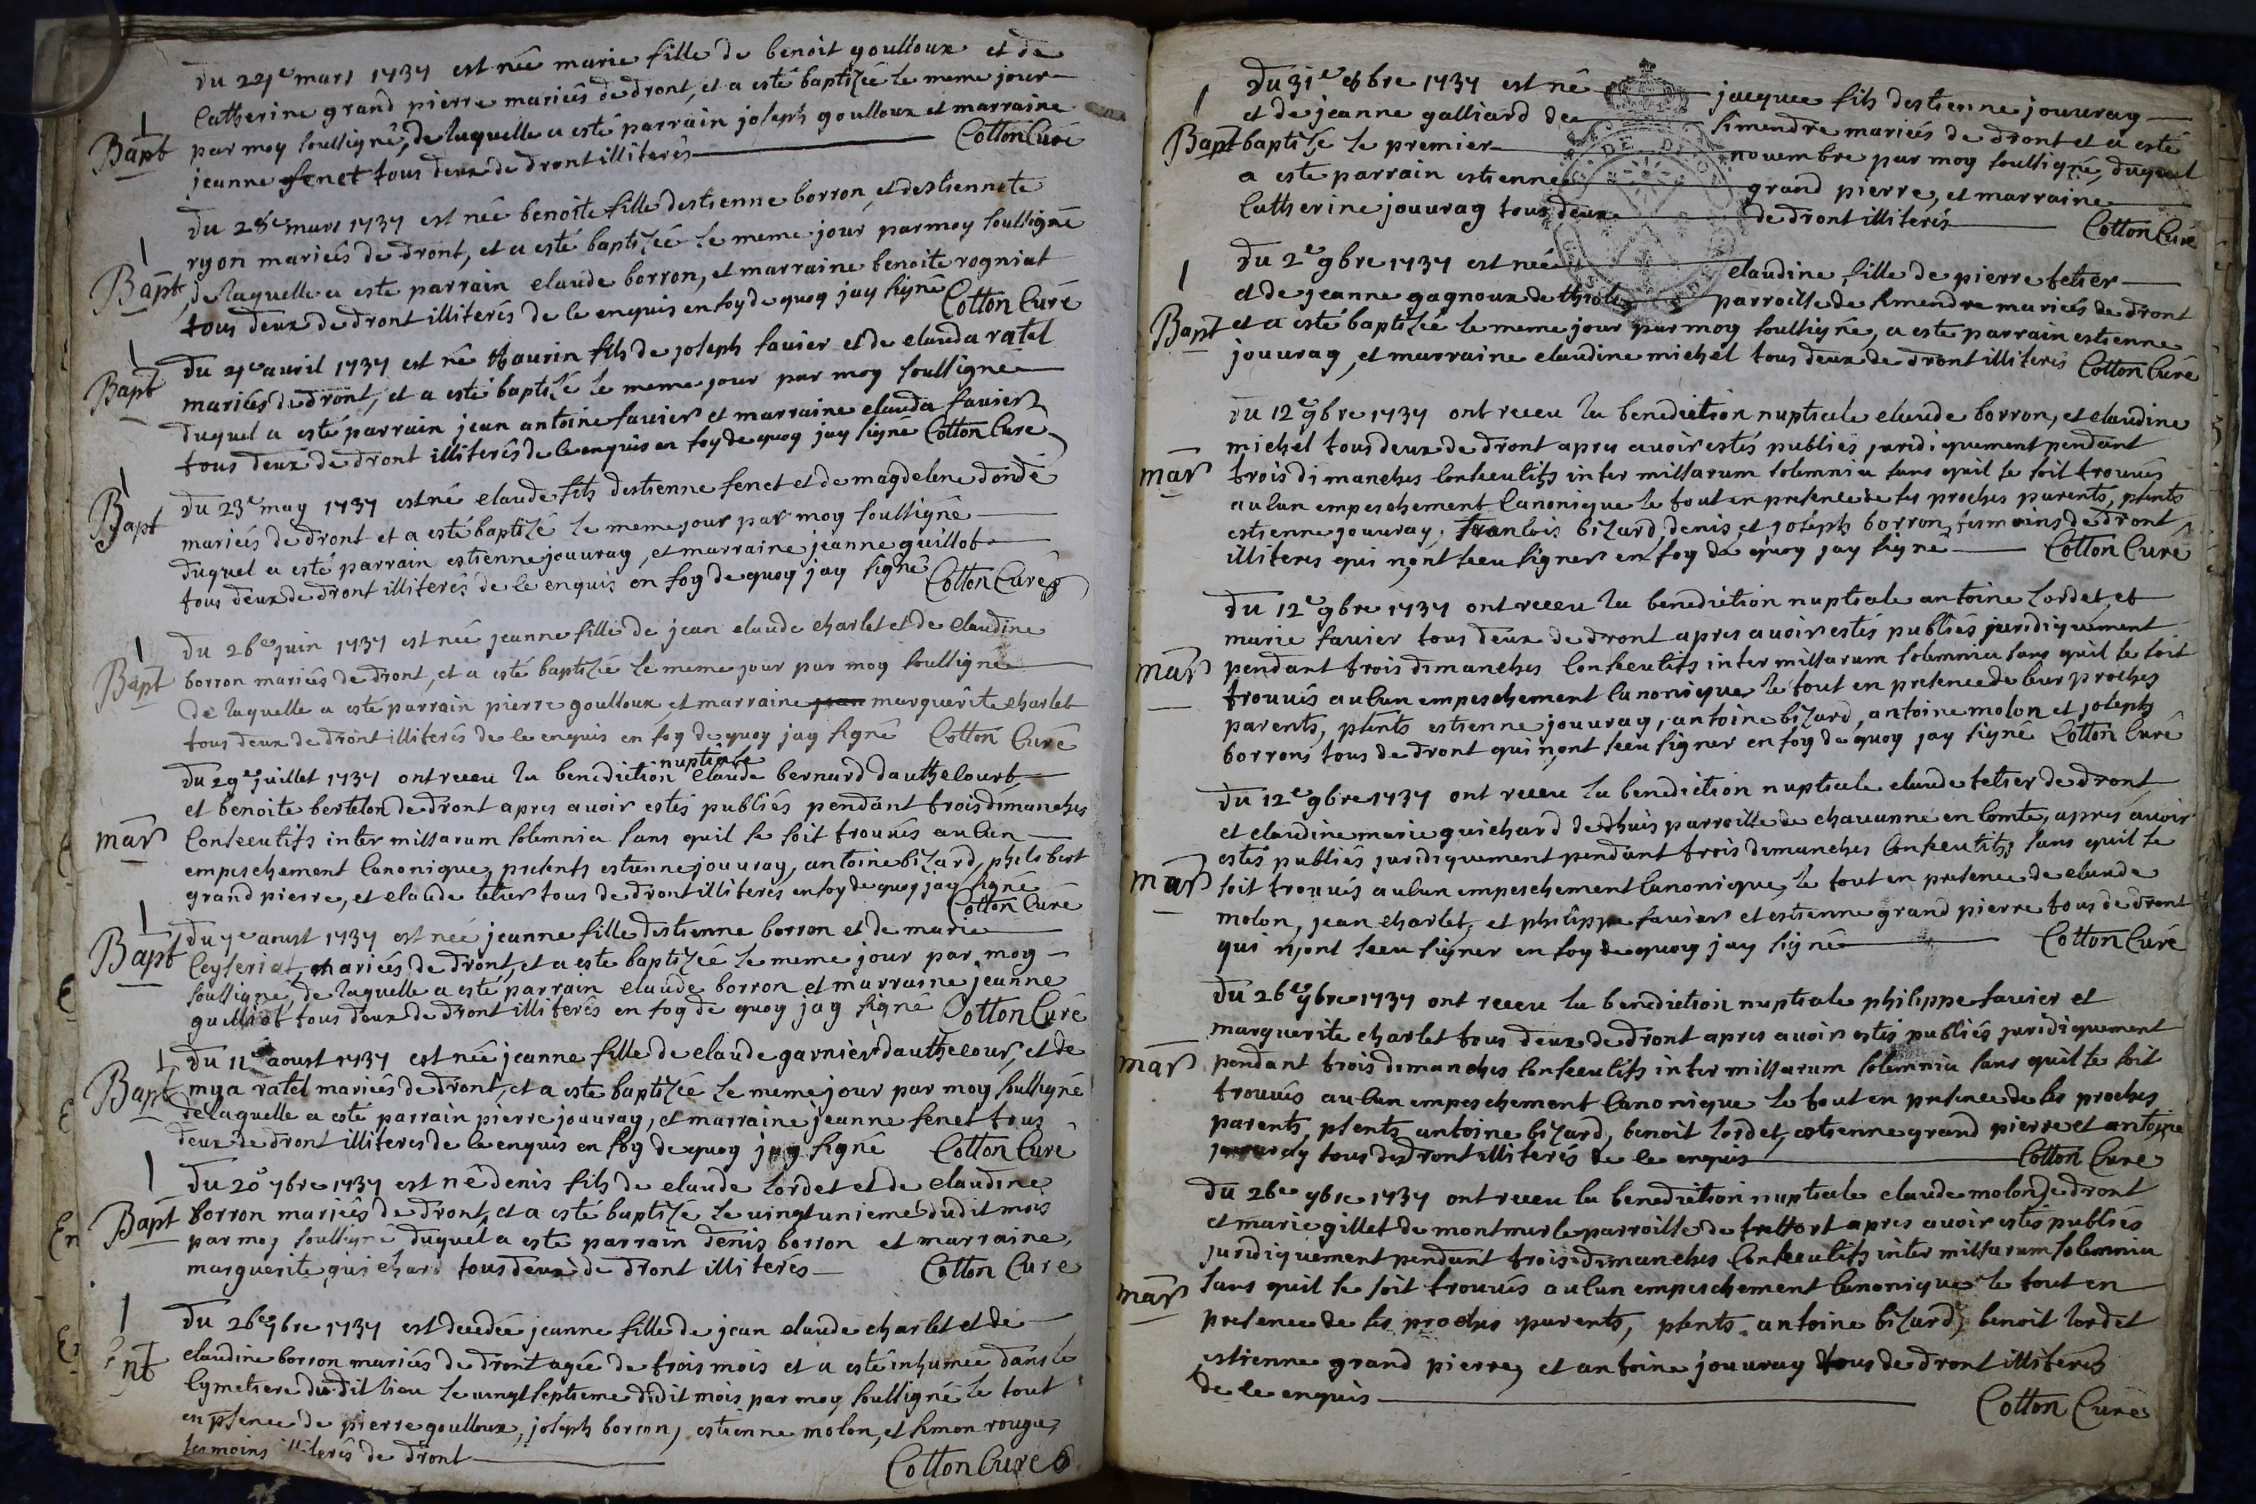 du 24e mars 1737 est née marie fille de benoit goulloux et de
Catherine grand pierre mariés de dront, et a esté baptizée le meme jour
Bapt par moy soussigné, de laquelle a esté parrain joseph goulloux et marraine
jeanne fenet tous deux de dront illiterés Cotton Curé
du 28e mars 1737 est née benoite fille destienne borron, et destiennete
ryon mariés de dront, et a esté baptizée le meme jour par moy soussigné
Bapt de laquelle a esté parrain claude borron, et marraine benoite rogniat
tous deux de dront illiterés de ce enquis en foy de quoy jay signé Cotton Curé
du 4e avril 1737 est né taurin fils de joseph favier et de clauda ratel
Bapt mariés de dront, et a esté baptizé le meme jour par moy soussigné
duquel a esté parrain jean antoine favier et marraine clauda favier
tous deux de dront illiterés de ce enquis en foy de quoy jay signé Cotton Curé
du 23e may 1737 est né claude fils destienne fenet et de magdelene dondé
Bapt mariés de dront et a esté baptizé le meme jour par moy soussigné
duquel a esté parrain estienne jouuray, et marraine jeanne guillot
tous deux de dront illiterés de ce enquis en foy de quoy jay signé Cotton Curé
du 26e juin 1737 est née jeanne fille de jean claude charlet et de claudine
Bapt borron mariés de dront, et a esté baptizée le meme jour par moy soussigné
de laquelle a esté parrain pierre goulloux, et marraine marguerite charlet
tous deux de dront illiterés de ce enquis en foy de quoy jay signé Cotton Curé
nuptiale
du 29e juillet 1737 ont receu la benediction claude bernard dauthecourt
et benoite bertelon de dront apres avoir estés publiés pendant trois dimanches
mar consecutifs inter missarum solemnia sans quil se soit trouués aucun
empeschement canonique, presents estienne jouuray, antoine bizard, philibert
grand pierre, et claude tetier tous de dront illiterés en foy de quoy jay signé
Cotton Curé
du 7e aoust 1737 est née jeanne fille destienne borron et de marie
Bapt Ceyseriat, mariés de dront, et a esté baptizée le meme jour par moy
soussigné, de laquelle a esté parrain claude borron et marraine jeanne
guilliot tous deux de dront illiterés en foy de quoy jay signé Cotton Curé
du 11e aoust 1737 est née jeanne fille de claude garnier dauthecour, et de
Bapt mya ratel mariés de dront, et a esté baptizée le meme jour par moy soussigné
de laquelle a esté parrain pierre jouuray, et marraine jeanne fenet tous
deux de dront illiterés de ce enquis en foy de quoy jay signé Cotton Curé
du 20e 7bre 1737 est né denis fils de claude cordet et de claudine
Bapt borron mariés de dront, et a esté baptizé le uingt unieme dudit mois
par moy soussigné duquel a esté parrain denis borron et marraine
marguerite guichard tous deux de dront illiterés Cotton Curé
du 26e 7bre 1737 est decedée jeanne fille de jean claude charlet et de
claudine borron mariés de dront agée de trois mois et a esté inhumée dans le
cymetiere dudit lieu le uingt septieme dudit mois par moy soussigné le tout
en psence de pierre goulloux, joseph borron, estienne molon, et simon rouge
tesmoins illiterés de dront
Cotton Curé
du 31e 8bre 1737 est né jacque fils destienne jouuray
et de jeanne galliard de simendre mariés de dront et a esté
Bapt baptizé le premier nouembre par moy soussigné, duquel
a esté parrain estienne grand pierre, et marraine
Catherine jouuray tous deux de dront illiterés Cotton Curé
du 2e 9bre 1737 est née claudine fille de pierre tetier
et de jeanne gagnoux de parroisse de simendre mariés de dront
Bapt et a esté baptizée le meme jour par moy soussigné, a esté parrain estienne
jouuray, et marraine claudine michel tous deux de dront illiterés Cotton Curé
du 12e 9bre 1737 ont receu la benediction nuptiale claude borron, et claudine
michel tous deux de dront apres auoir estés publiés juridiquement pendant
mar trois dimanches consecutifs inter missarum solemnia sans quil se soit trouués
aucun empeschement canonique le tout en presence de ses proches parents, psents
estienne jouuray, francois bizard, denis et joseph borron, tesmoins de dront
illiteres qui nont sceu signer en foy de quoy jay signé Cotton Curé
du 12e 9bre 1737 ont receu la benediction nuptiale antoine cordet, et
marie favier tous deux de dront apres auoir estés publiés juridiquement
mar pendant trois dimanches consecutifs inter missarum solemnia sans quil se soit
trouués aucun empeschement canonique le tout en presence de leur proches
parents, psents estienne jouuray, antoine bizard, antoine molon et joseph
borron tous de dront qui nont sceu signer en foy de quoy jay signé Cotton Curé
du 12e 9bre 1737 ont receu la benediction nuptiale claude tetier de dront
et claudine marie guichard de dhuis parroisse de chauanne en comte, apres auoir
estés publiés juridiquement pendant trois dimanches consecutifs, sans quil se
mar soit trouués aucun empeschement canonique, le tout en presence de claude
molon, jean charlet, et philippe favier et estienne grand pierre tous de dront
qui nont sceu signer en foy de quoy jay signé Cotton Curé
du 26e 9bre 1737 ont receu la benediction nuptiale philippe favier et
marguerite charlet tous deux de dront apres auoir estés publiés juridiquement
mar pendant trois dimanches consecutifs inter missarum solemnia sans quil se soit
trouués aucun empeschement canonique le tout en presence de ses proches
parents, psents antoine bizard, benoit cordet, estienne grand pierre et antoine
jouuray tous de dront illiterés de ce enquis Cotton Curé
du 26e 9bre 1737 ont receu la benediction nuptiale claude molon de dront
et marie gillet de montmerle parroisse de treffort apres auoir estés publiés
juridiquement pendant trois dimanches consecutifs inter missarum solemnia
mar sans quil se soit trouués aucun empeschement canonique le tout en
presence de ses proches parents, psents antoine bizard, benoit cordet
estienne grand pierre, et antoine jouuray tous de dront illiterés
de ce enquis
Cotton Curé